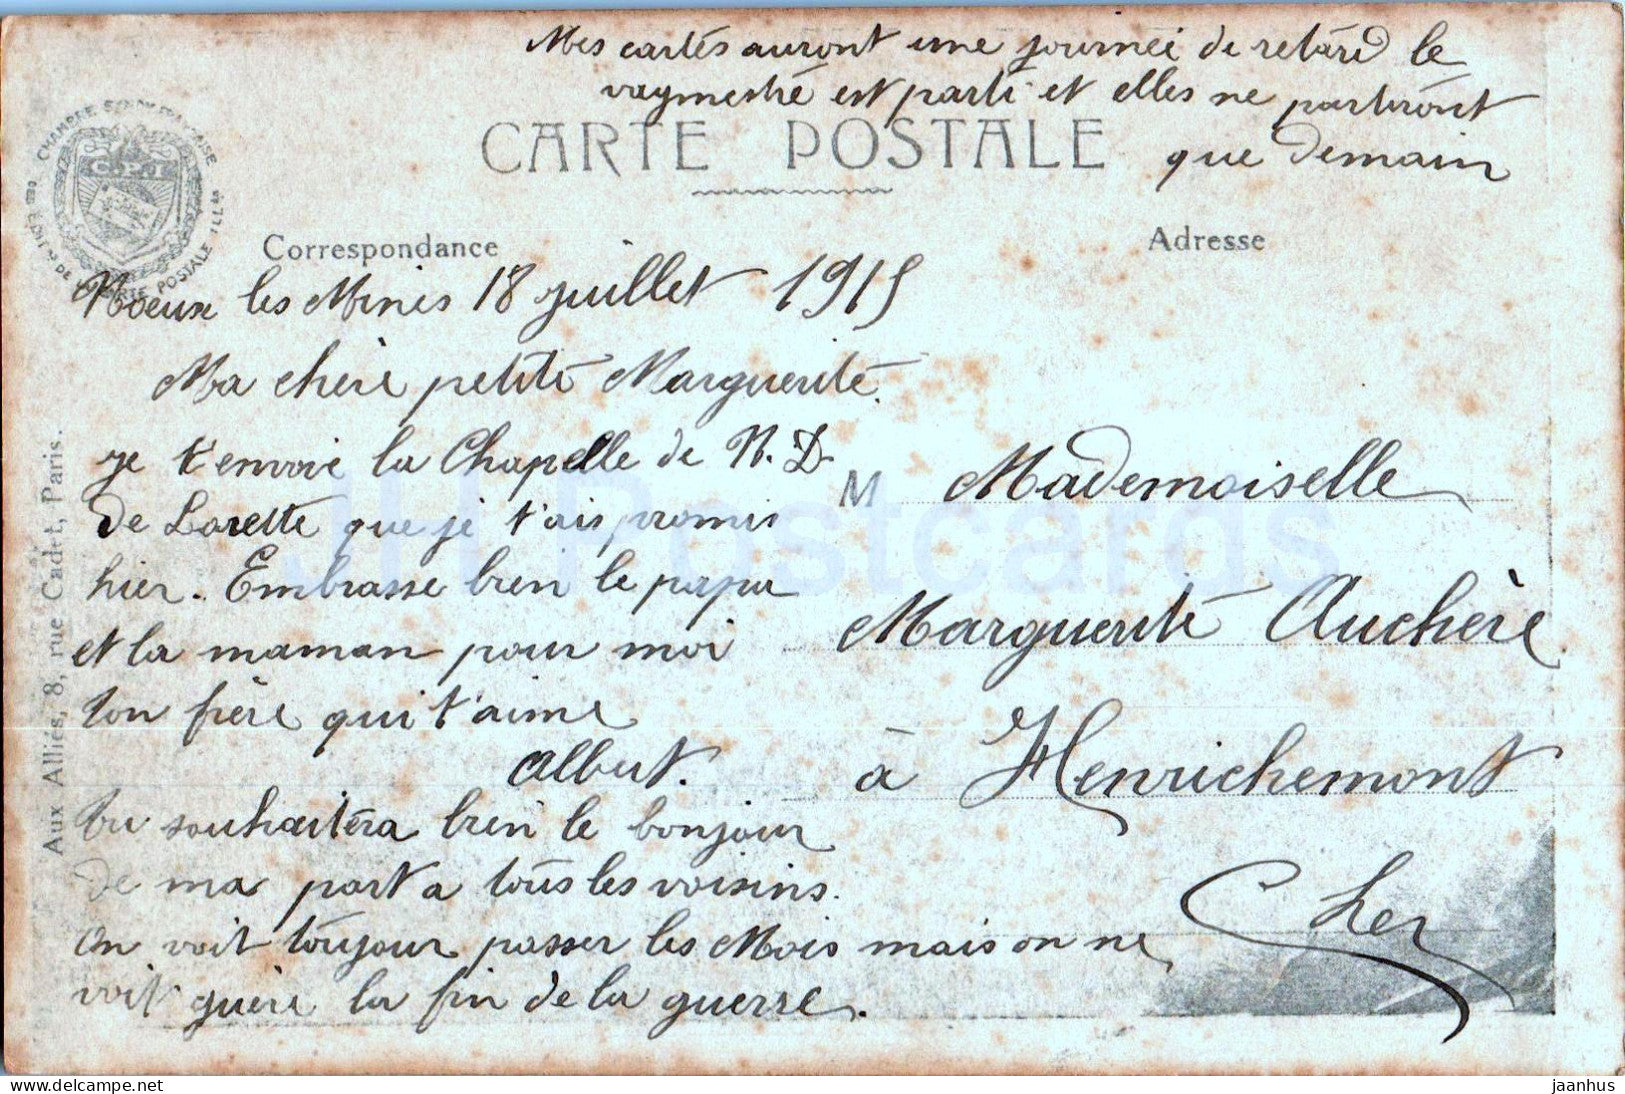 Mes cartes auront une journée de retard le
vaguemestre est parti et elles ne partiront
que demain
CARTE POSTALE
CHAMBRE SYNDICALE FRANÇAISE
C.P.I
DE LA CARTE POSTALE ILLée
Correspondance
Adresse
Noeux les Mines 18 juillet 1915
Ma chère petite Marguerite
je t'envoie la Chapelle de N. D.
de Lorette que je t'ais promis
hier. Embrasse bien le papa
et la maman pour moi
ton frère qui t'aime
Albert.
Tu souhaitéra bien le bonjour
de ma part a tous les voisins.
On voit toujour passer les Mois mais on ne
voit guère la fin de la guerre.
M Mademoiselle
Marguerite Auchère
à Henrichemont
Cher
Aux Alliés, 8, rue Cadet, Paris.
JH Postcards
jaanhus
delcampe.net